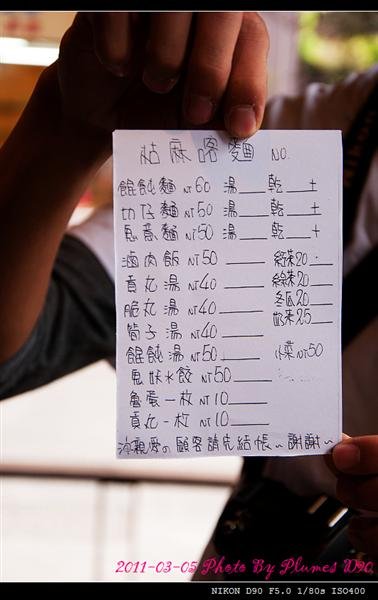 咕麻喀麵 NO.
餛飩麵 NT 60 湯____ 乾____ 士
切仔麵 NT 50 湯____ 乾____ 士
意麵 NT 50 湯____ 乾____ +
滷肉飯 NT 50____ 紅茶20____
貢丸湯 NT 40____ 綠茶20____
脆丸湯 NT 40____ 冬瓜20____
筍子湯 NT 40____ 奶茶25____
餛飩湯 NT 50____ 小菜NT50
水餃 NT 50____
魯蛋一枚 NT 10____
貢丸一枚 NT 10____
親愛の顧客請先結帳~謝謝~
2011-03-05 Photo By Plumes D90.
NIKON D90 F5.0 1/80s ISO400